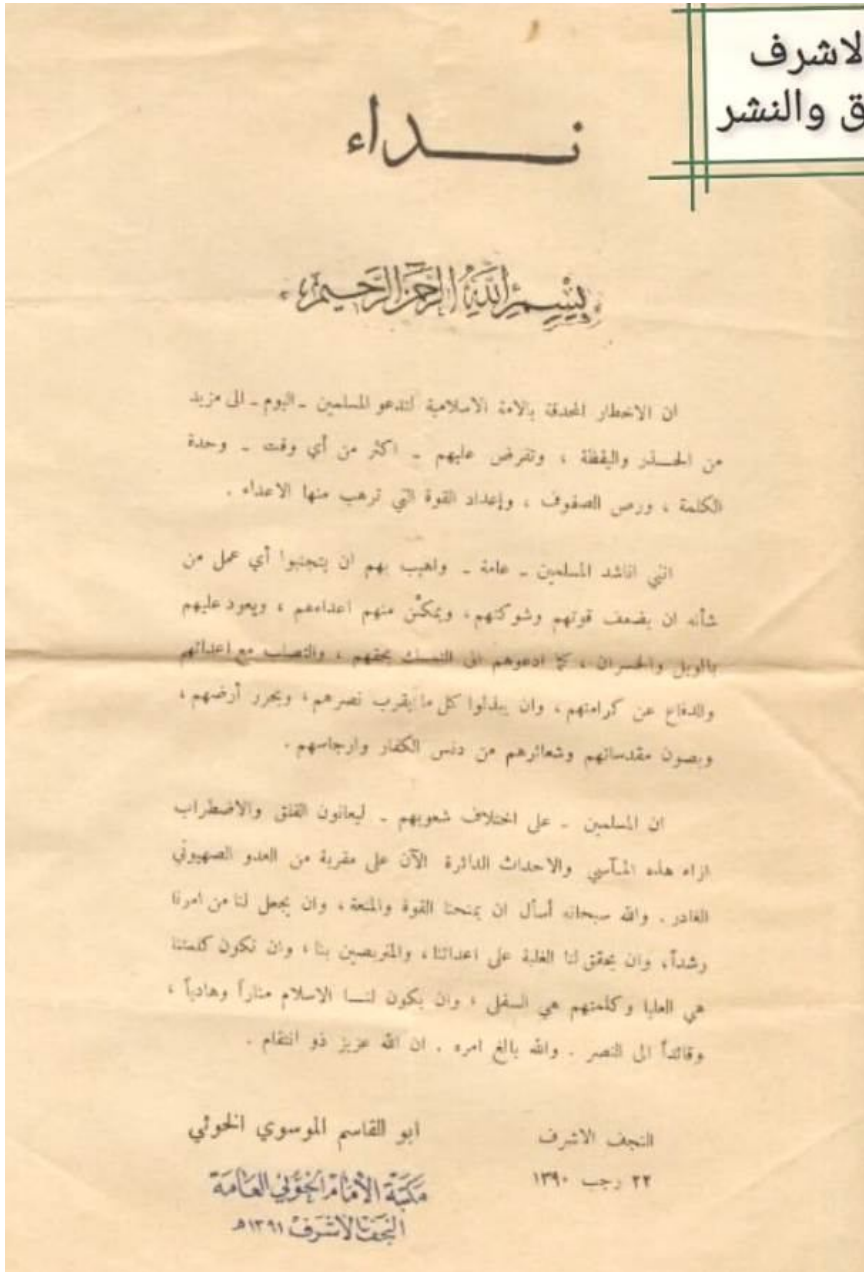 الاشرف
ق والنشر
نـــداء
بسم الله الرحمن الرحيم
ان الاخطار المحدقة بالامة الاسلامية لتدعو المسلمين ـ اليوم ـ الى مزيد
من الحـــذر واليقظة ، وتفرض عليهم ـ اكثر من أي وقت ـ وحدة
الكلمة ، ورص الصفوف ، وإعداد القوة التي ترهب منها الاعداء .
انني اناشد المسلمين ـ عامة ـ واهيب بهم ان يتجنبوا أي عمل من
شأنه ان يضعف قوتهم وشوكتهم ، ويمكّن منهم اعداءهم ، ويعود عليهم
بالويل والخسران ، كما ادعوهم الى التمسك بحقهم ، والتصلب مع اعدائهم
والدفاع عن كرامتهم ، وان يبذلوا كل ما يقرب نصرهم ، ويحرر أرضهم ،
ويصون مقدساتهم وشعائرهم من دنس الكفار وارجاسهم .
ان المسلمين ـ على اختلاف شعوبهم ـ ليعانون القلق والاضطراب
ازاء هذه المـآسي والاحداث الدائرة الآن على مقربة من العدو الصهيوني
الغادر . والله سبحانه أسأل ان يمنحنا القوة والمنعة ، وان يجعل لنا من امرنا
رشداً ، وان يحقق لنا الغلبة على اعدائنا ، والمتربصين بنا ، وان تكون كلمتنا
هي العليا وكلمتهم هي السفلى ، وان يكون لنـــا الاسلام مناراً وهادياً ،
وقائداً الى النصر . والله بالغ امره . ان الله عزيز ذو انتقام .
ابو القاسم الموسوي الخوئي
النجف الاشرف
٢٢ رجب ١٣٩٠
مكتبة الأمام الخوئي العامة
النجف الاشرف ١٣٩١ هـ